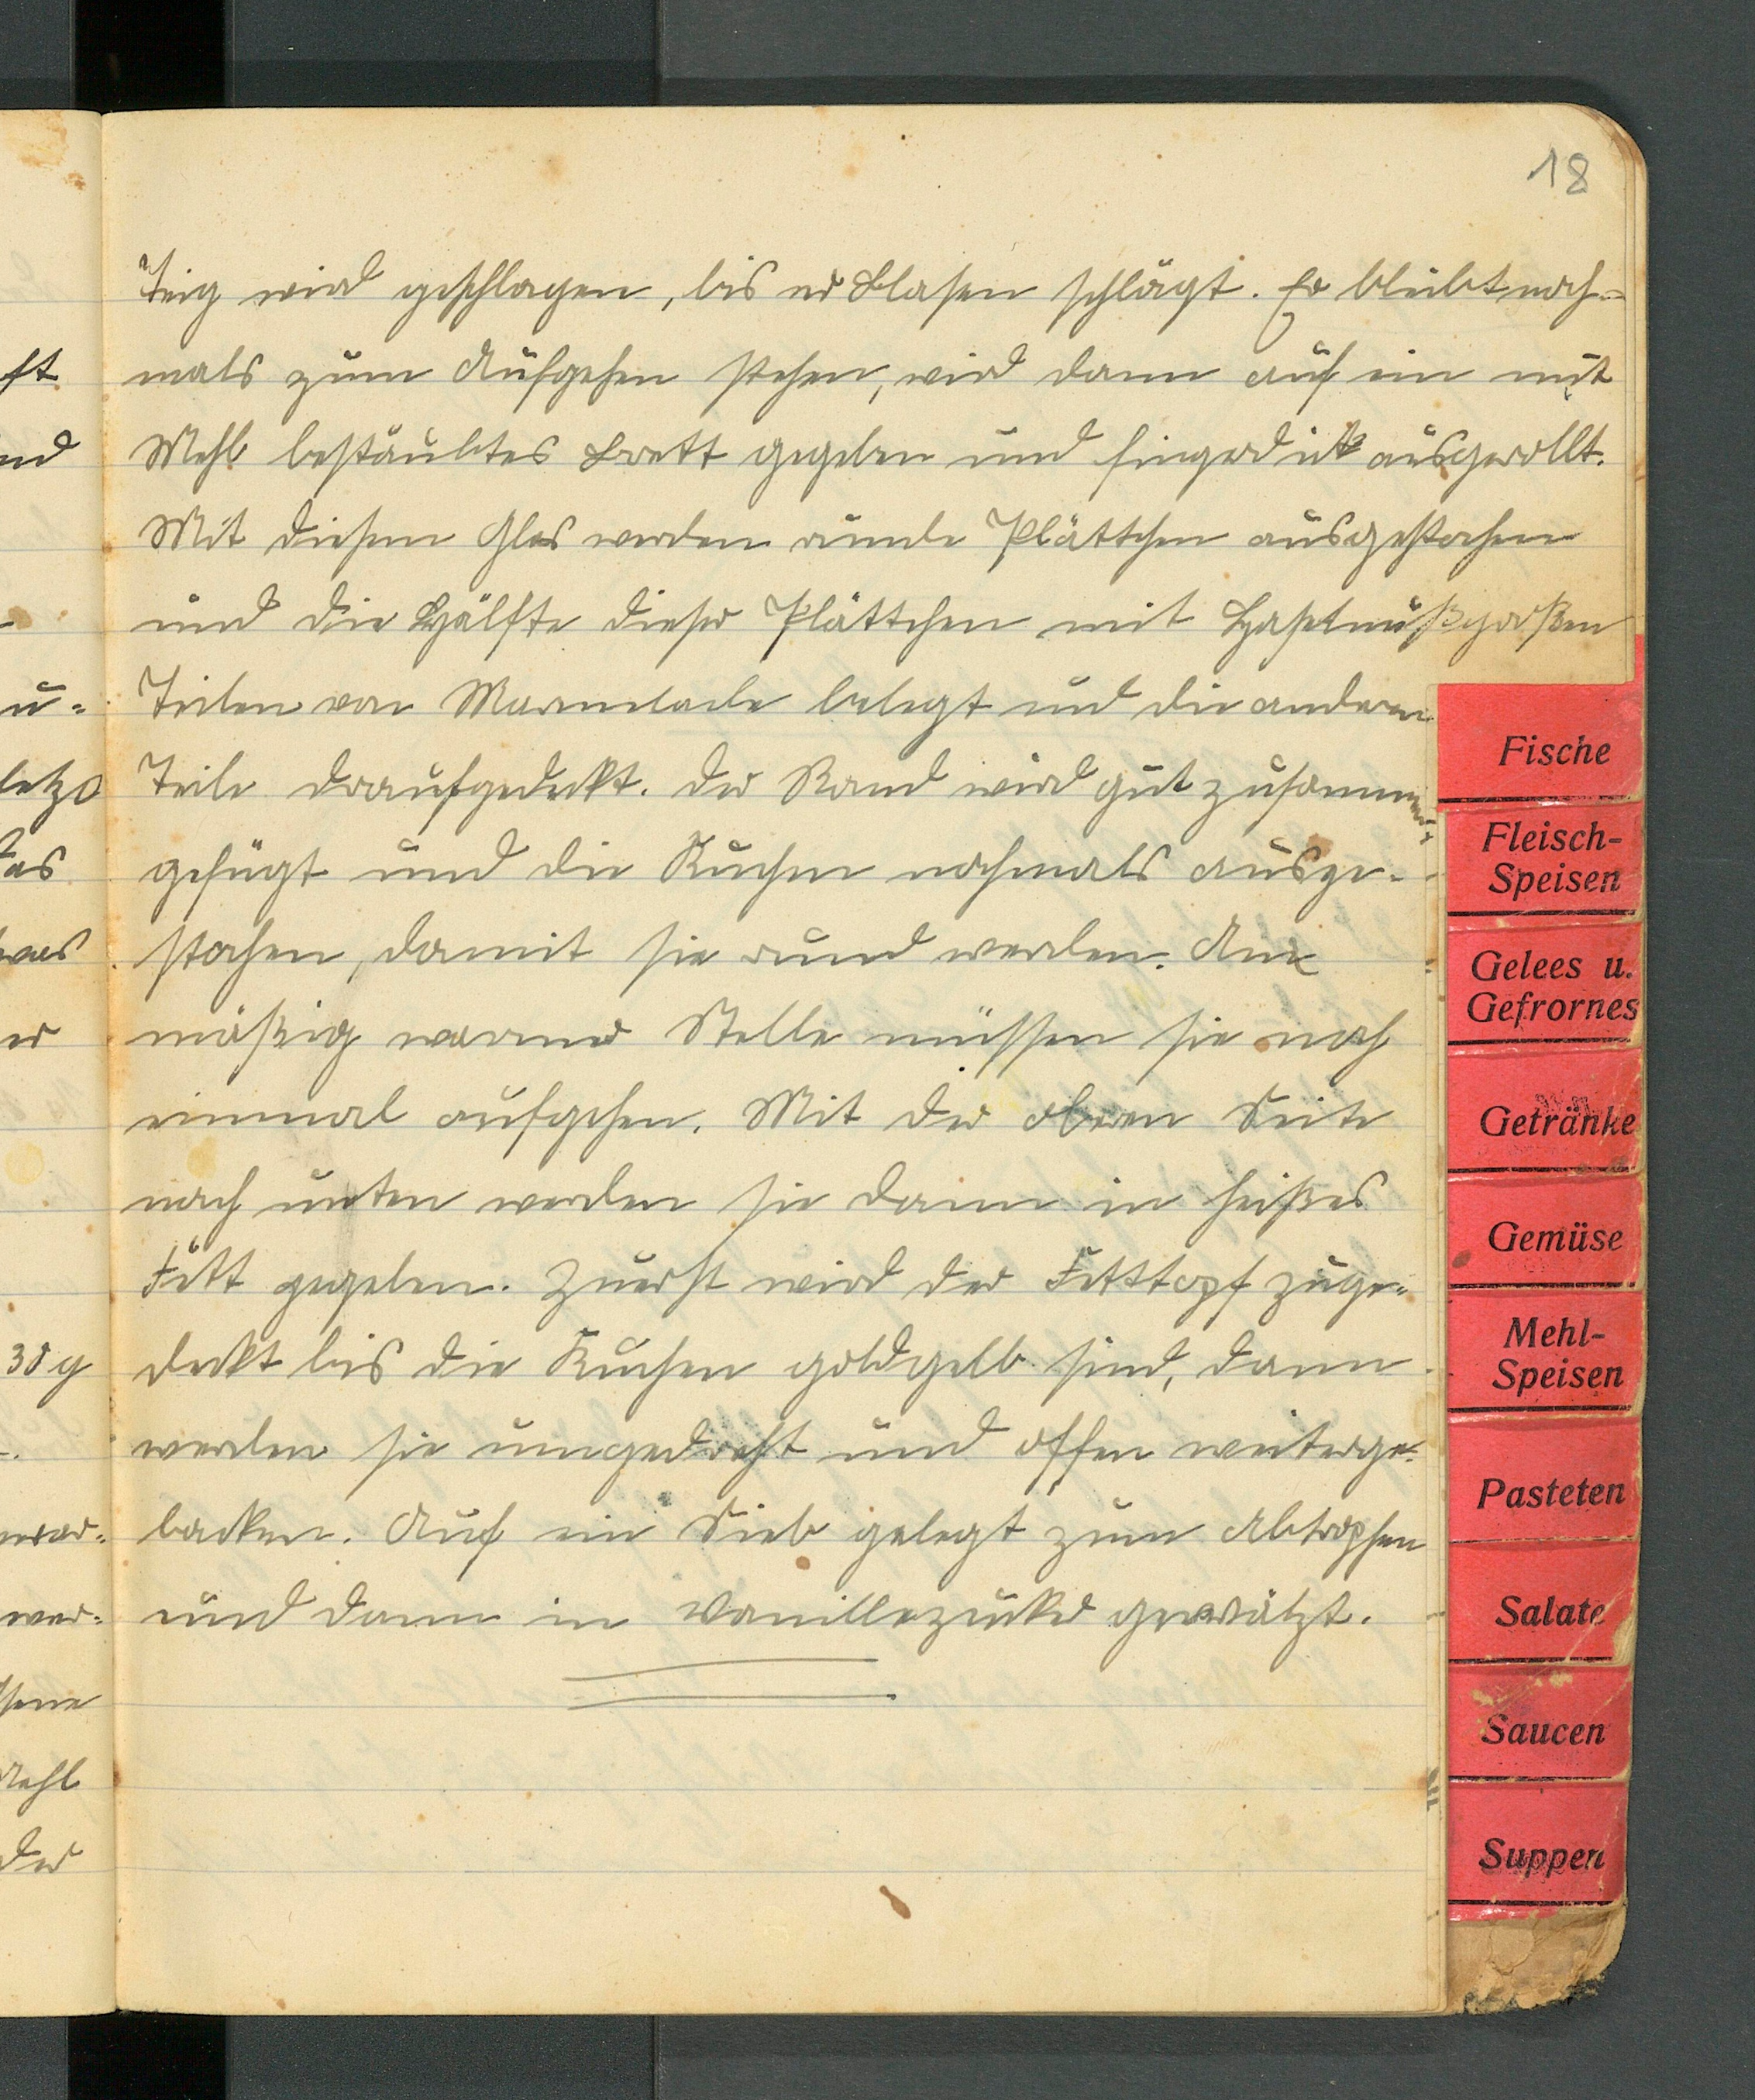 18
Teig wird geschlagen, bis er Blasen schlägt. Er bleibt noch=
mals zum Aufgehen stehen, wird dann auf ein mit
Mehl bestäubtes Brett gegeben und fingerdick ausgerollt.
Mit diesem Glas werden runde Plättchen ausgestochen
und die Hälfte dieser Plättchen mit Haselnußgroßen
Teilen von Marmelade belegt und die anderen
Teile draufgedeckt. Der Rand wird gut zusammen=
gefügt und die Kuchen nochmals ausge-
stochen, damit sie rund werden. An
mäßig warmer Stelle müssen sie noch
einmal aufgehen. Mit der oberen Seite
nach unten werden sie dann in heißes
Fett gegeben. Zuerst wird der Fetttopf zuge=
deckt bis die Kuchen goldgelb sind, dann
werden sie umgedreht und offen weiterge-
backen. Auf ein Sieb gelegt zum Abtropfen
und dann in Vanillezucker gewälzt.
Fische
Fleisch-
Speisen
Gelees u.
Gefrornes
Getränke
Gemüse
Mehl-
Speisen
Pasteten
Salate
Saucen
Suppen
ft
nd
u=
letzo
as
er
30 g
wer=
der